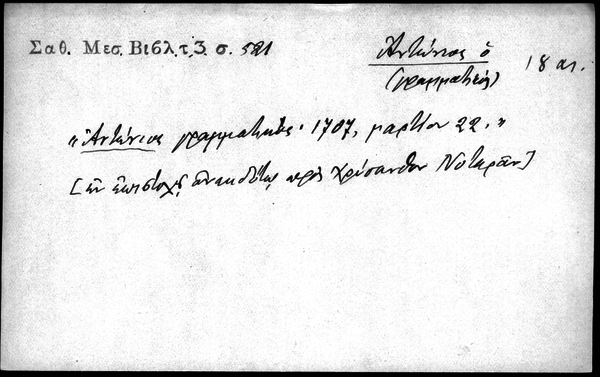 Σαθ. Μεσ. Βιβλ. τ. 3. σ. 521
Ἀντώνιος ὁ
(γραμματικός)
18 αι.
"Ἀντώνιος γραμματικός. 1707, μαρτίου 22."
[ἐν ἐπιστολῇ ἀνεκδότῳ πρὸς Χρύσανθον Νοταρᾶν]